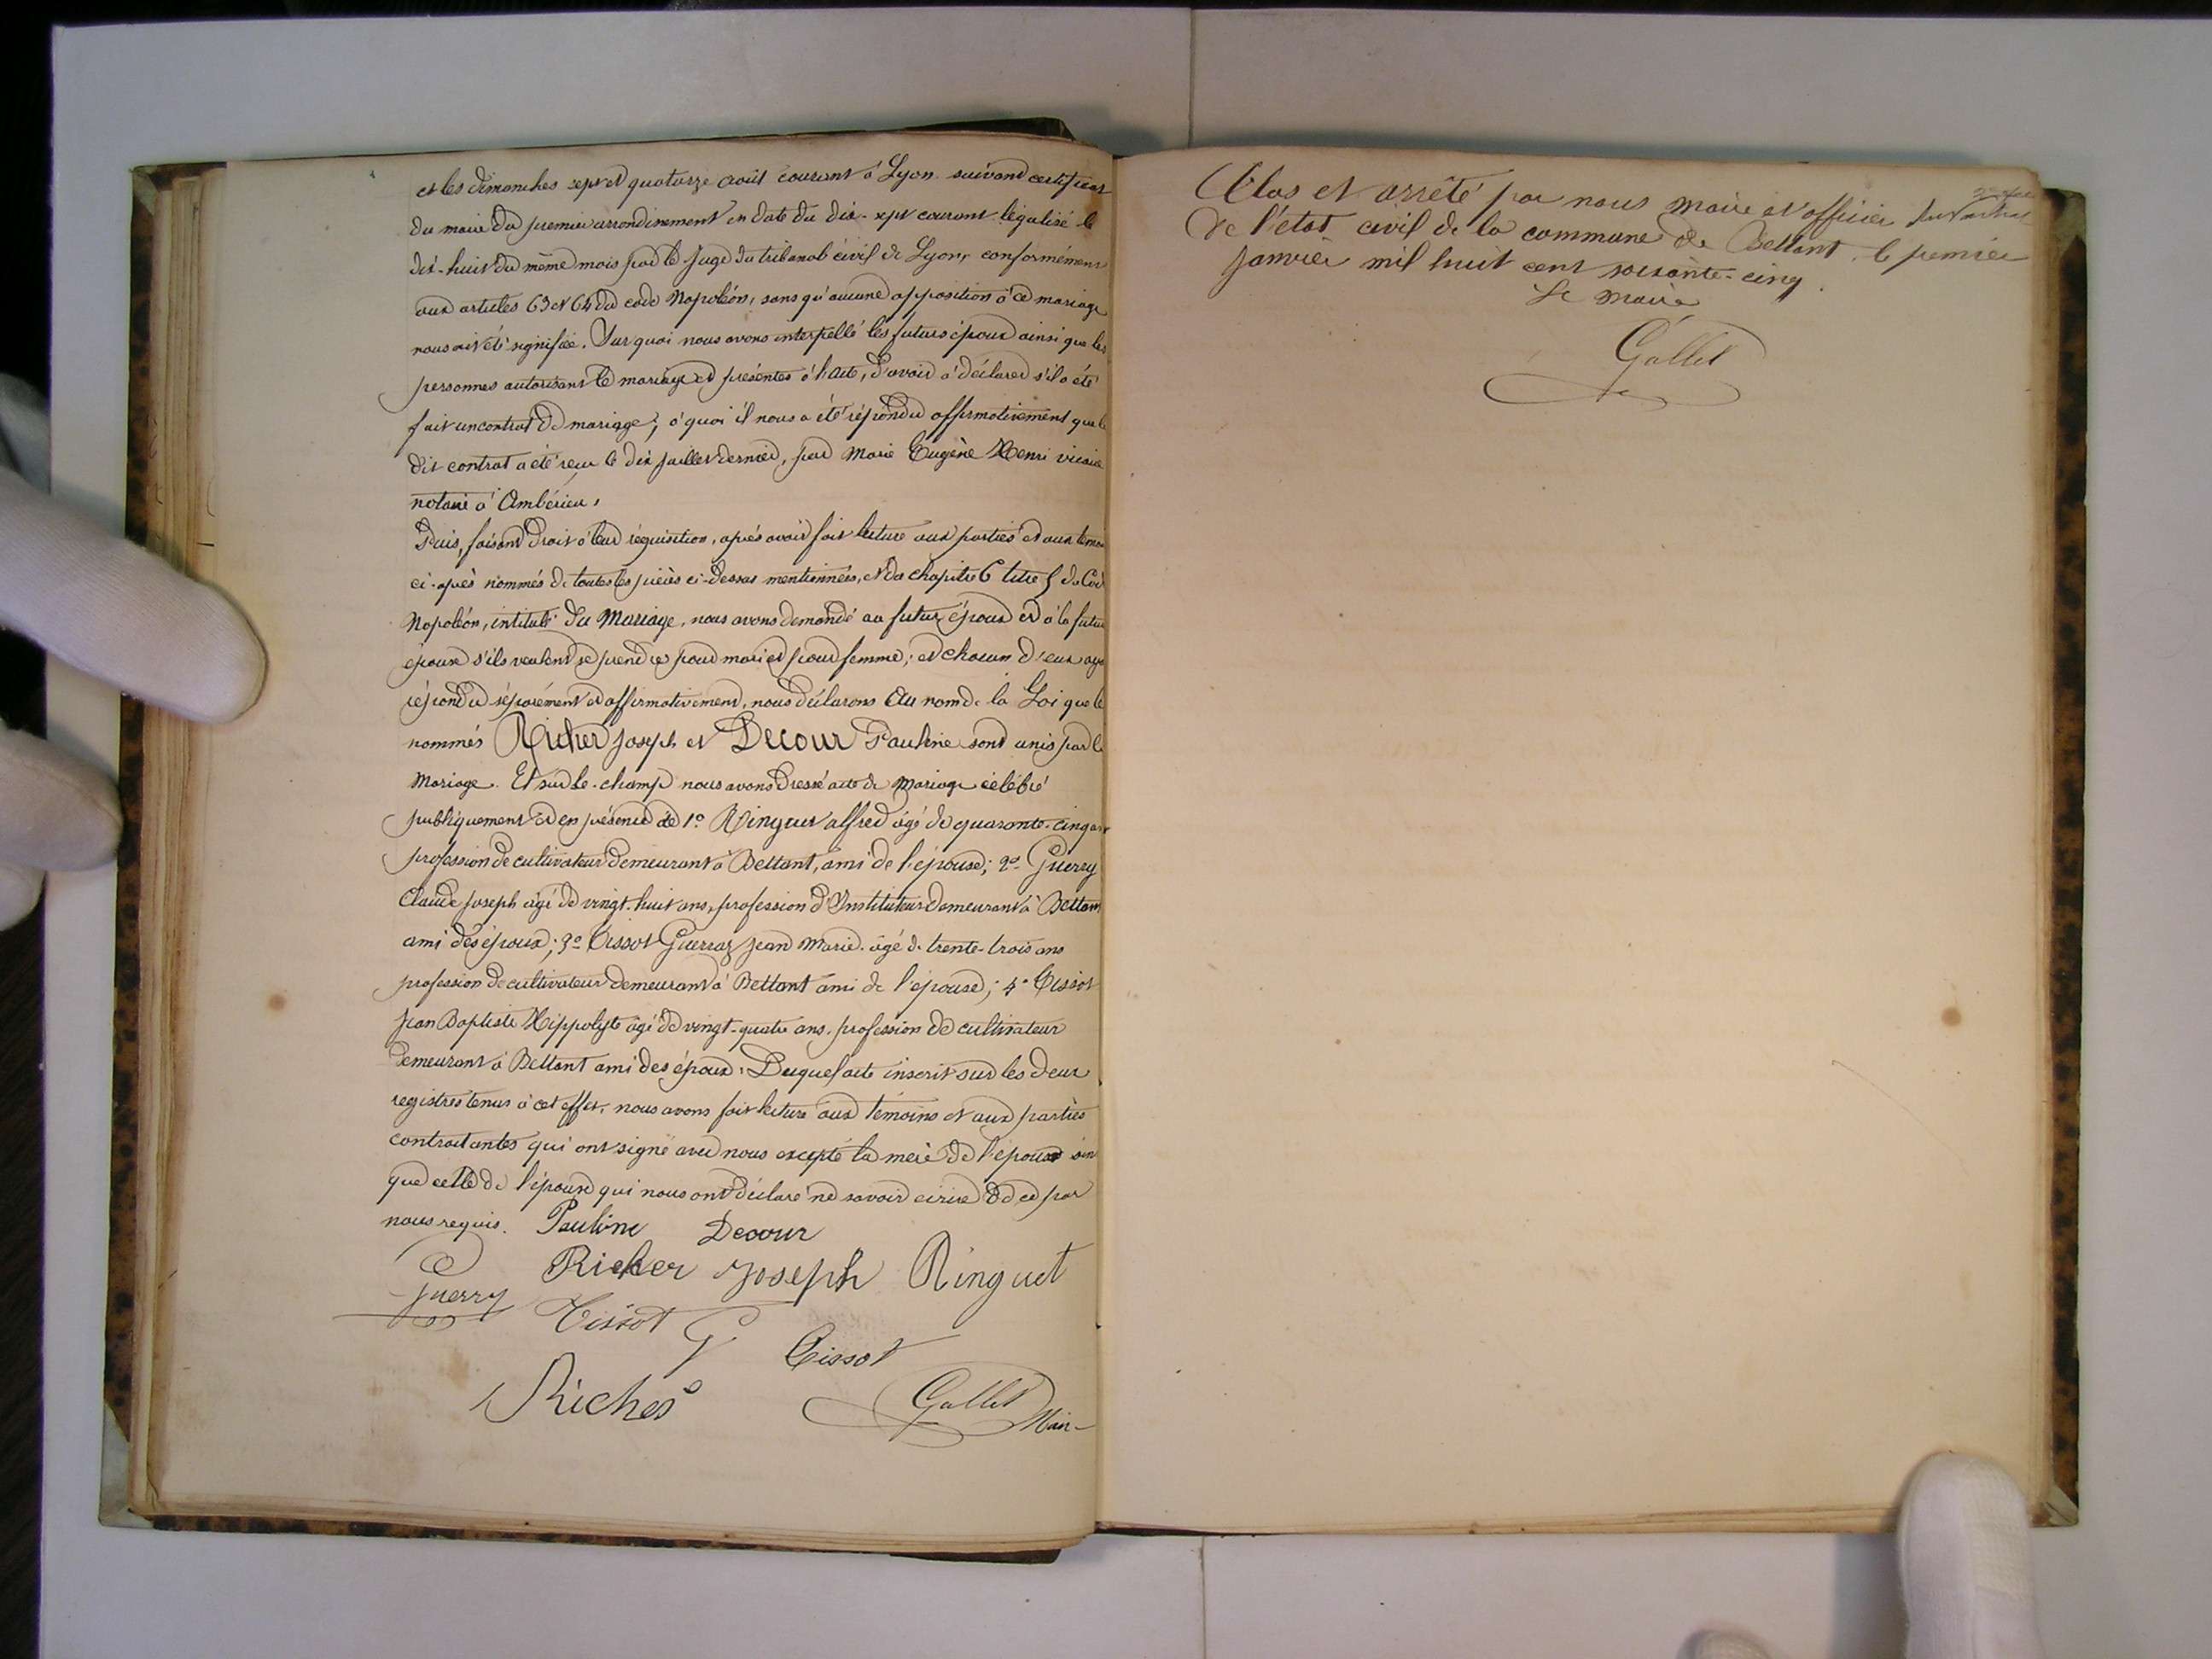 et les dimanches sept et quatorze août courant à Lyon suivant certificat
du maire du premier arrondissement en date du dix-sept courant légalisé le
dix-huit du même mois par le juge du tribunal civil de Lyon, conformément
aux articles 63 et 64 du code Napoléon, sans qu'aucune opposition à ce mariage
nous ait été signifiée. Sur quoi nous avons interpellé les futurs époux ainsi que les
personnes autorisant le mariage et présentes à l'acte, d'avoir à déclarer s'il a été
fait un contrat de mariage; à quoi il nous a été répondu affirmativement que le
dit contrat a été reçu le dix juillet dernier, par Marie Eugène Henri vicaire
notaire à Ambérieu,
Puis, faisant droit à leur réquisition, après avoir fait lecture aux parties et aux témoi
ci-après nommés de toutes les pièces ci-dessus mentionnées, et du chapitre 6 titre 5 du Code
Napoléon, intitulé du Mariage, nous avons demandé au futur époux et à la future
épouse s'ils veulent se prendre pour mari et pour femme; et chacun d'eux aya
répondu séparément et affirmativement, nous déclarons Au nom de la Loi que le
nommés Richer Joseph et Decour Pauline sont unis par le
Mariage. Et sur le-champ nous avons dressé acte de Mariage célébré
publiquement et en présence de 1° Ringuet alfred âgé de quarante-cinq ans
profession de cultivateur demeurant à Bettant, ami de l'épouse; 2° Guerry
Claude Joseph âgé de vingt-huit ans, profession d'Instituteur demeurant à Bettant
ami des époux; 3° Tissot Guerraz Jean Marie âgé de trente-trois ans
profession de cultivateur demeurant à Bettant ami de l'épouse; 4° Tissot
Jean Baptiste Hippolyte âgé de vingt-quatre ans, profession de cultivateur
demeurant à Bettant ami des époux. Duquel acte inscrit sur les deux
registres tenus à cet effet, nous avons fait lecture aux témoins et aux parties
contractantes qui ont signé avec nous excepté la mère de l'époux
que celle de l'épouse qui nous ont déclaré ne savoir écrire de ce par
nous requis. Pauline Decour
Richer Joseph Ringuet
Guerry Tissot G Tissot
Richer Gallet Maire
Clos et arrêté par nous Maire et officier
de l'état civil de la commune de Bettant, le premier
Janvier mil huit cent soixante-cinq.
Le Maire
Gallet